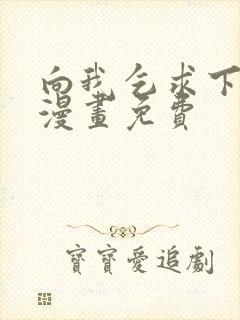 向我乞求下
漫畫免費
寶寶愛追劇